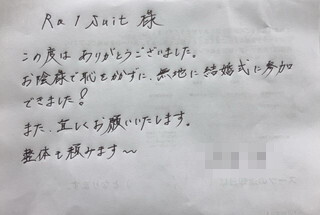 Ra 1 Suit 様
この度は ありがとうございました。
お陰様で恥をかかずに、無地に結婚式に参加
できました!
また、宜しくお願いいたします。
整体も頼みます〜